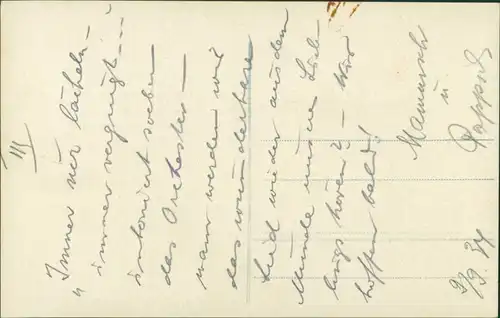 III
„ Immer nur lächeln –
immer vergnügt –"
intoniert soeben
das Orchester –
wann werden wir
das wunderbare
Lied wieder aus dem
Munde unseres Lieb-
lings hören? – Wir
hoffen bald!
Mamuschi
u
Pappos
9. 34